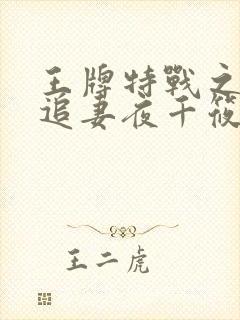 王牌特戰之
追妻夜千筱
王二虎